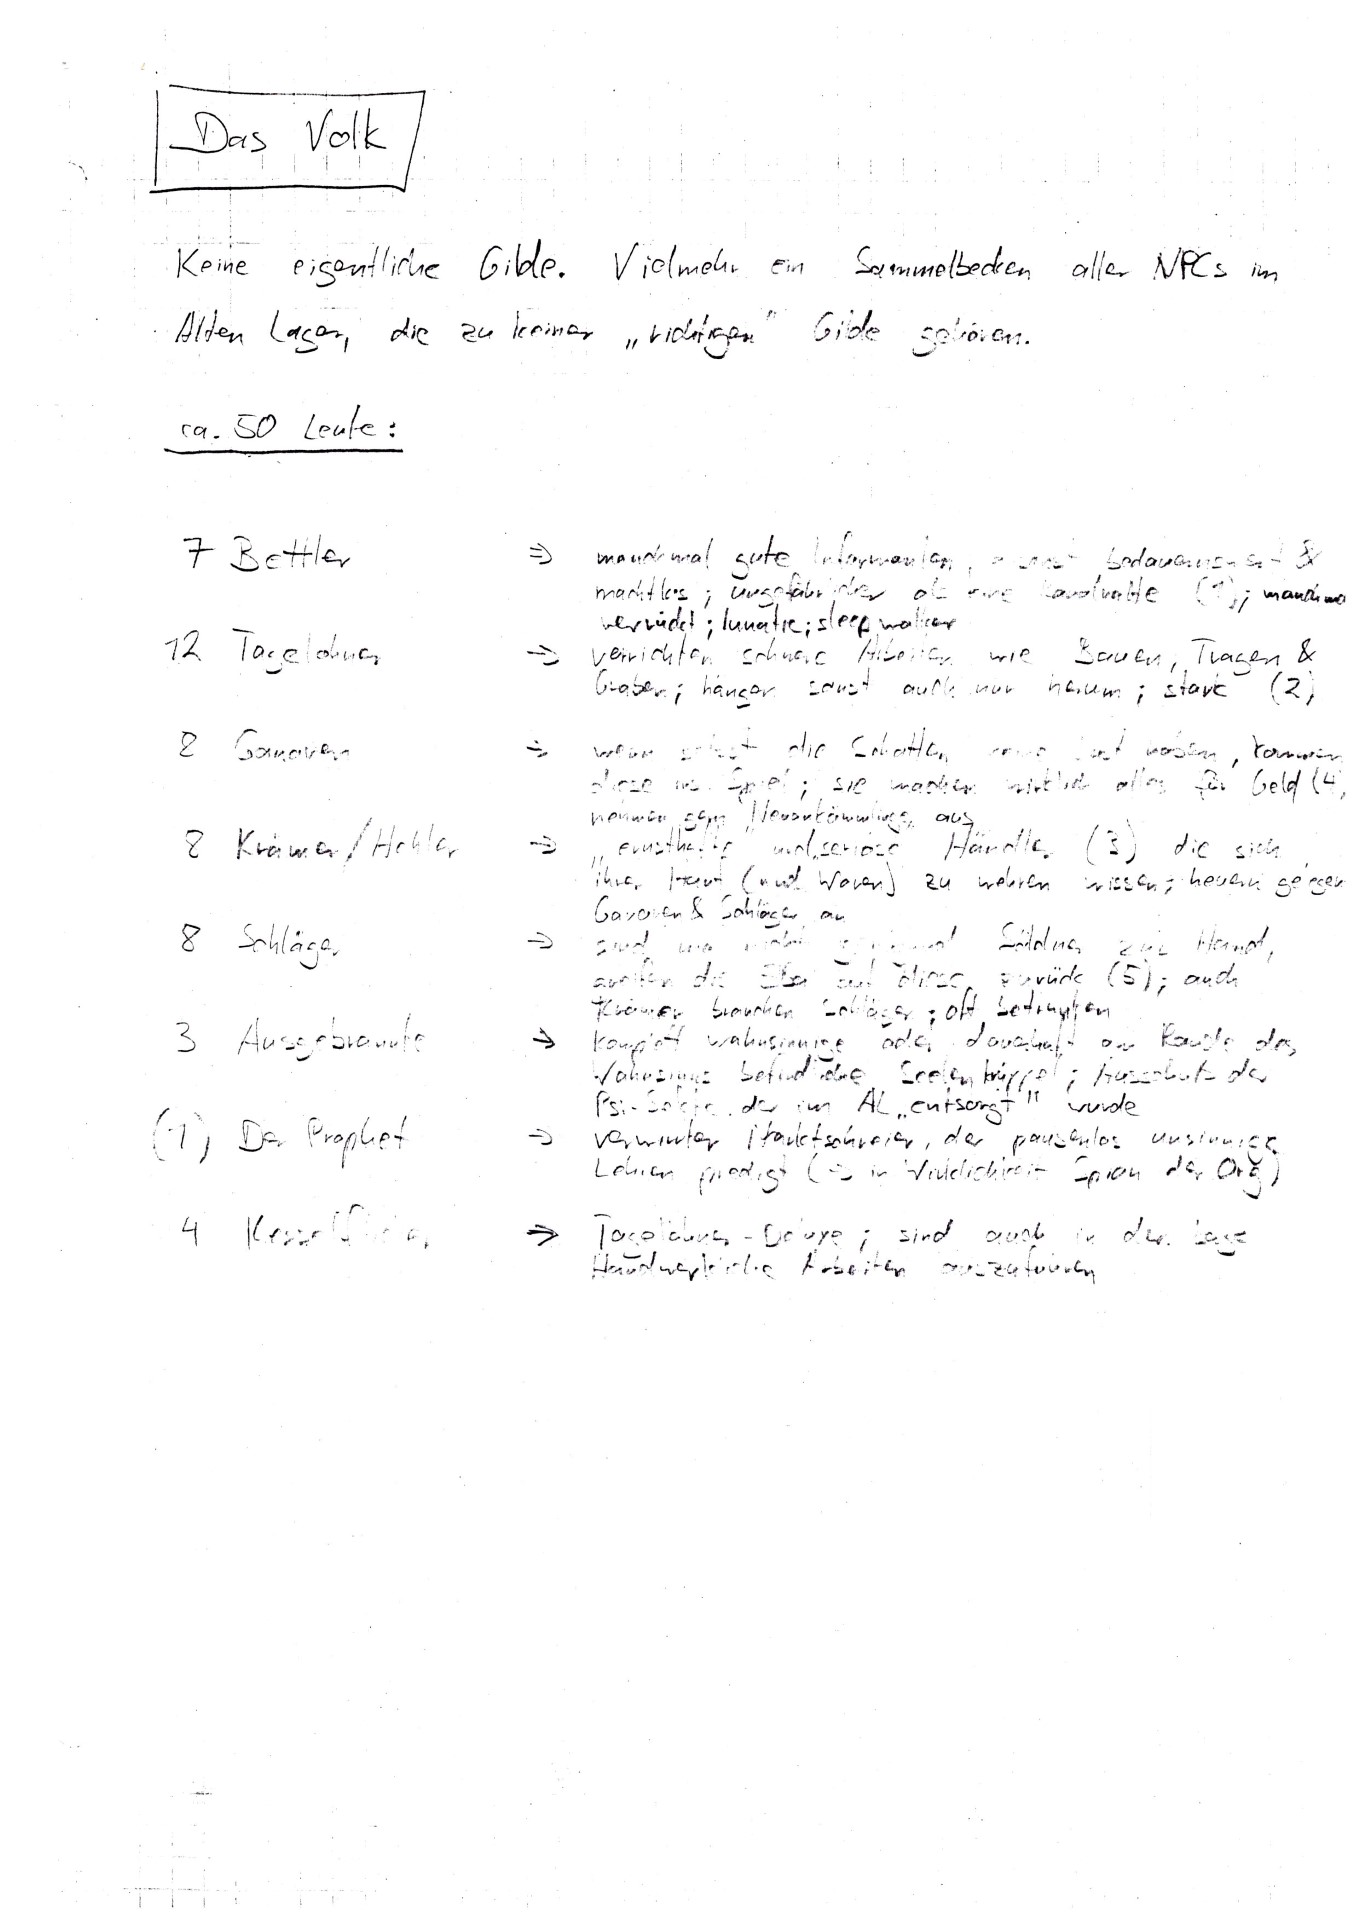 Das Volk
Keine eigentliche Gilde. Vielmehr ein Sammelbecken aller NPCs im
Alten Lager, die zu keiner „richtigen" Gilde gehören.
ca. 50 Leute:
7 Bettler => manchmal gute Informanten, sonst bedauernswert &
machtlos; ungefährlicher als eine Landratte (1); manchma
verrückt; lunatic; sleepwalker
12 Tagelöhner => verrichten schwere Arbeiten wie Bauen, Tragen &
Graben; hängen sonst auch nur herum; stark (2)
8 Ganoven => wenn selbst die Schatten keine Lust haben, kommen
diese ins Spiel; sie machen wirklich alles für Geld (4)
nehmen gern Neuankömmlinge aus
8 Krämer/Hehler => „ernsthafte und seriöse Händler (3) die sich
ihrer Haut (und Waren) zu wehren wissen; heuern gegen
Ganoven & Schläger an
8 Schläger => sind mal nicht genügend Söldner zur Hand,
greifen die Eba auf diese zurück (5); auch
Krämer brauchen Schläger; oft betrunken
3 Ausgebrannte => komplett wahnsinnige oder dauerhaft am Rande des
Wahnsinns befindliche Seelenkrüppel; Ausschuß der
Psi-Sekte, der im AL „entsorgt" wurde
(1) Der Prophet => verwirrter Marktschreier, der pausenlos unsinnige
Lehren predigt (=> in Wirklichkeit Spion der Org)
4 Kesselflicker => Tagelöhner-Deluxe; sind auch in der Lage
Handwerkliche Arbeiten auszuführen